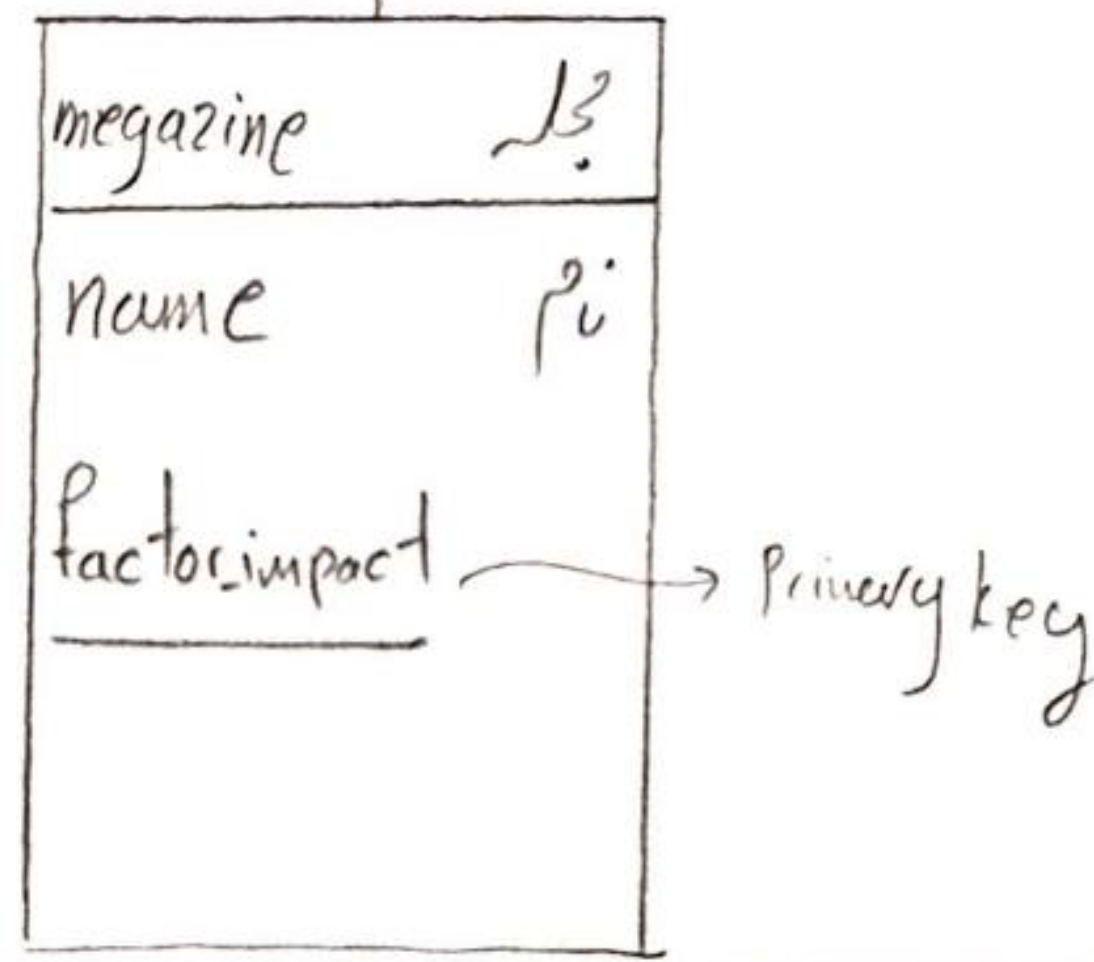 megazine مجله
name نام
factor_impact → Primary key